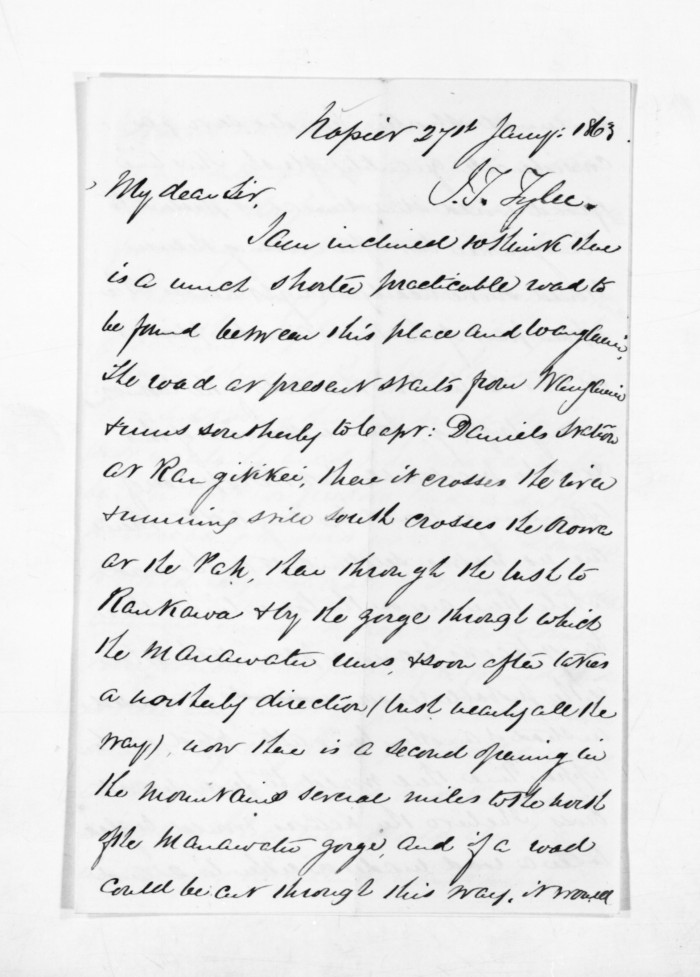 Napier 27th Jany: 1863.
My dear Sir. J. T. Tylee.
I am inclined to think there
is a much shorter practicable road to
be found between this place and Wanganui,
The road at present starts from Wanganui
& runs southerly to Capt: Daniels Station
at Rangitikei, there it crosses the river
& running still south crosses the Oroua
at the Pah, then through the bush to
Raukawa & by the gorge through which
the Manawatu runs, & soon after takes
a northerly direction (bush nearly all the
way), now there is a second opening in
the mountains several miles to the north
of the Manawatu gorge, and if a road
could be cut through this way, it would